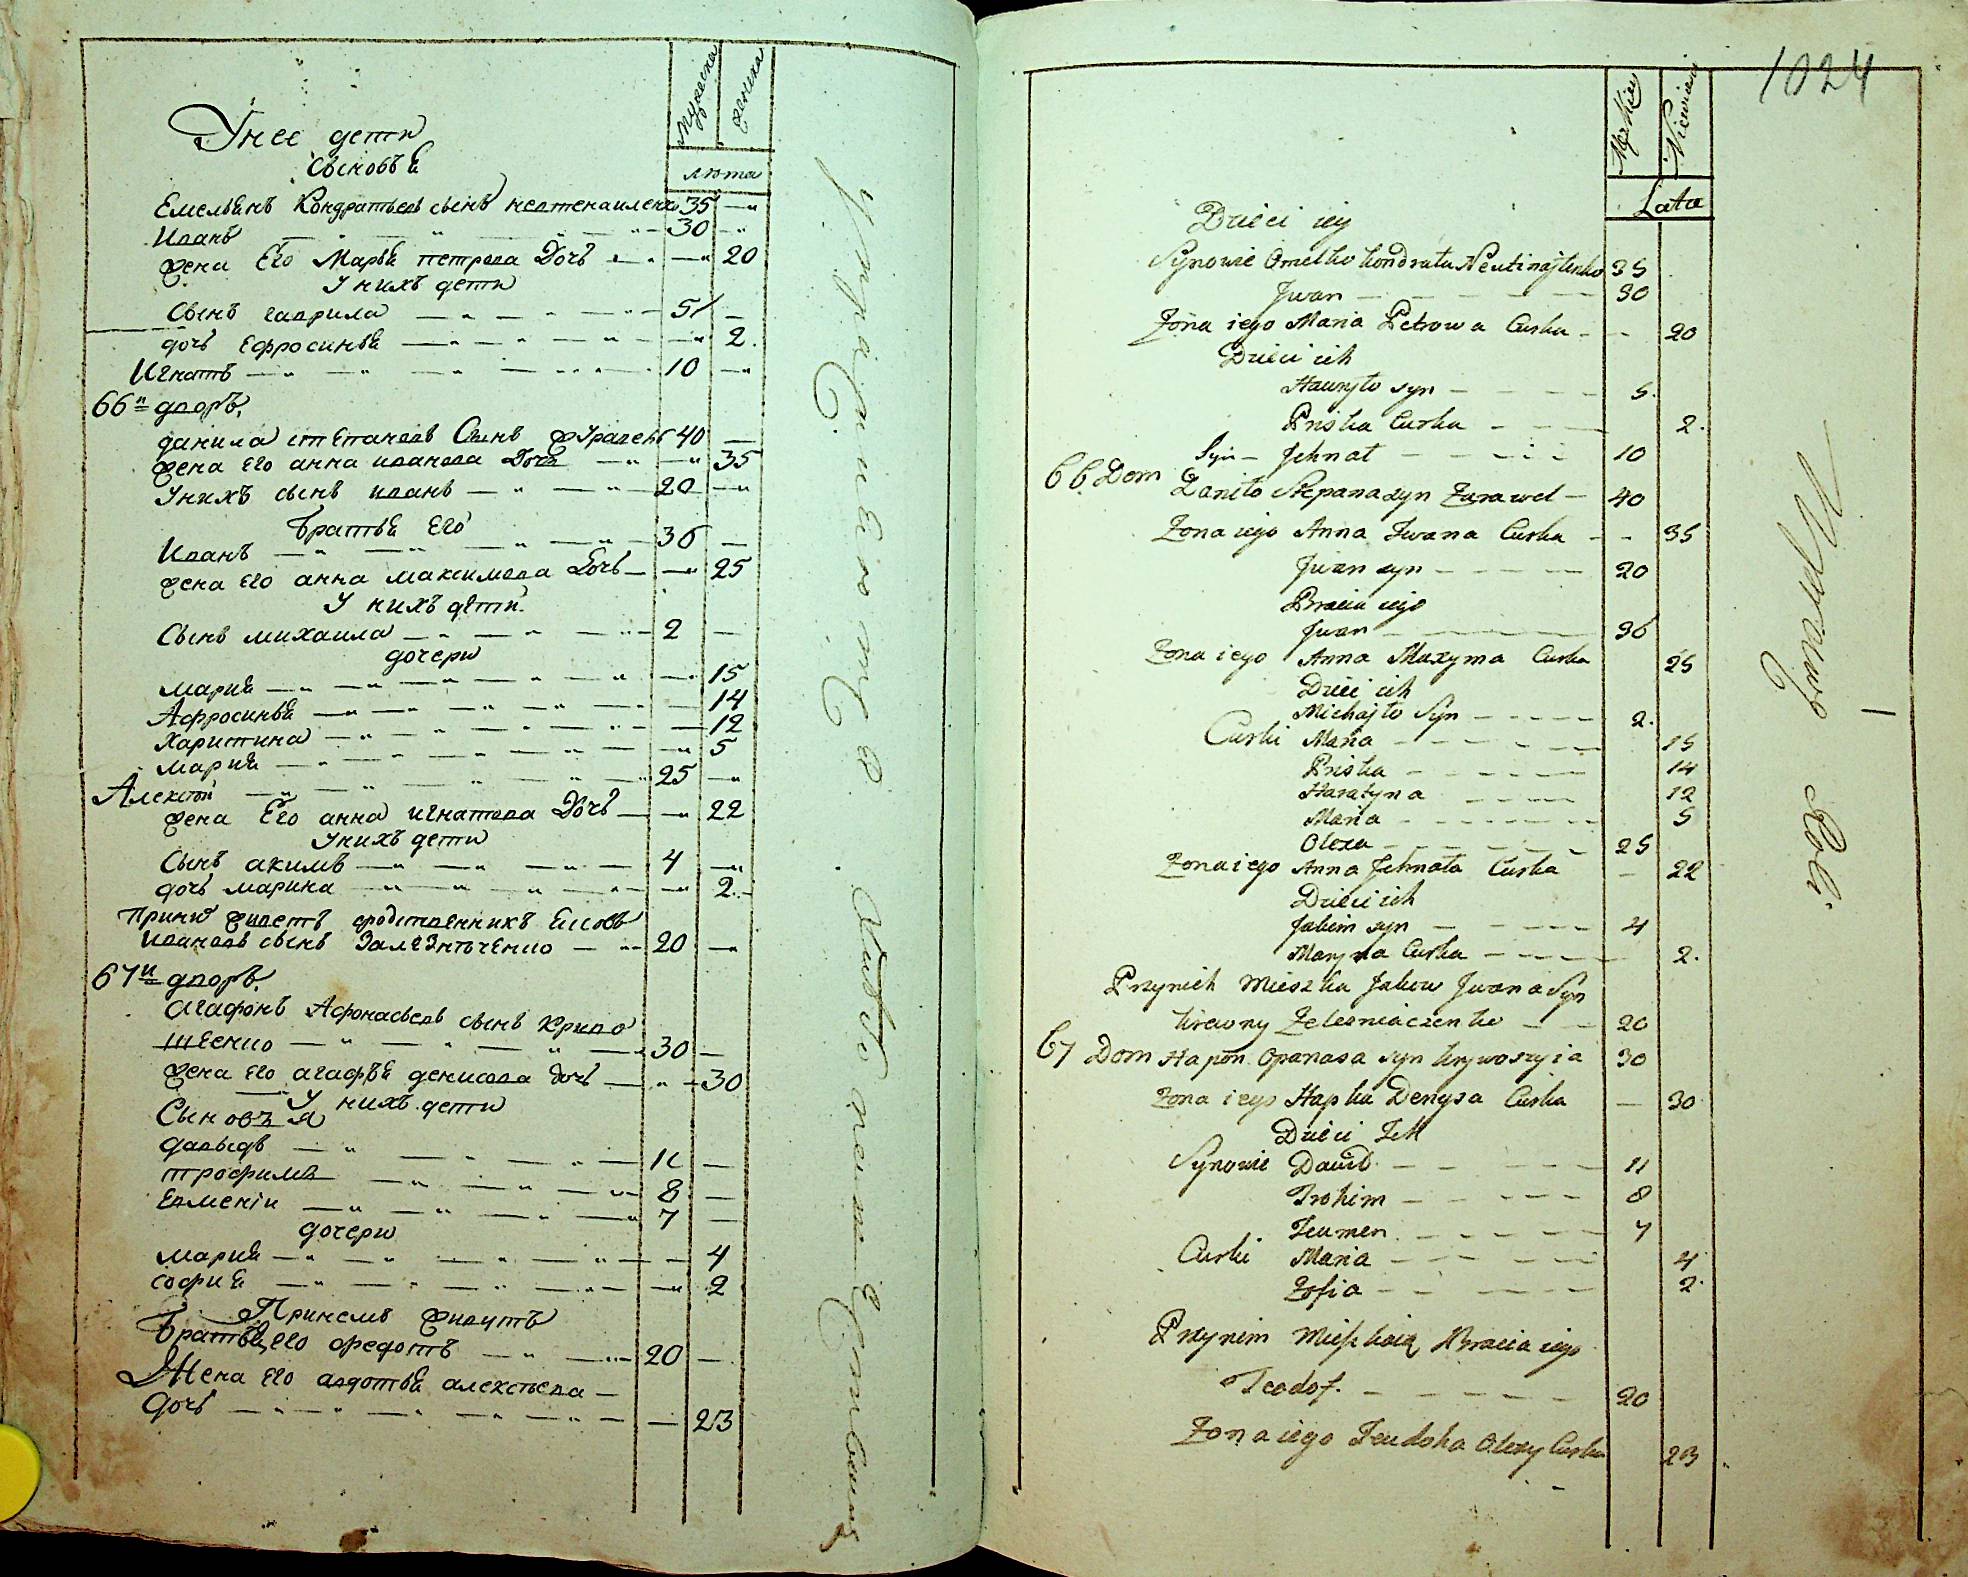 Мужеска
женска
лѣта
У нее дети
Сыновья
Емельянъ Кондратьевъ сынъ 35 — "
Иванъ — " — " — 30 — "
жена Его Марья петрова Дочь — " 20
У нихъ дети
Сынъ гаврила — " — " — 5 —
дочь Ефросинья — " — " — " 2.
Игнатъ — " — " — 10 — "
66й дворъ.
данила степановъ Сынъ журавель 40 —
жена Его анна иванова Дочь — " — " 35
У нихъ сынъ иванъ — " — " 20 — "
братья Его
Иванъ — " — " — " — 36 —
жена Его анна максимова Дочь — — " 25
У нихъ дети.
Сынъ михаила — " — " — 2 —
дочери
мария — " — " — " 15
Афросинья — " — " — 14
харитина — " — " — 12
мария — " — " — " 5
Алексѣй — " — " — 25 — "
жена Его анна игнатова Дочь — — " 22
У нихъ дети
Сынъ акимъ — " — " — 4 — "
дочь марина — " — " — " 2.
При нихъ живетъ сродственникъ
Ивановъ сынъ — " 20 — "
67й дворъ.
агафонъ Афонасьевъ сынъ криво
шеенко — " — " — 30 —
жена Его агафья денисова дочь — " — 30
У нихъ дети
Сыновья
давыдъ — " — " — 11 —
трофимъ — " — " — 8 —
Евмений — " — " — 7 —
дочери
мария — " — " — — 4
софия — " — " — — " 2
При немъ живутъ
братья его федотъ — " — 20 —
Жена Его авдотья алексѣева —
дочь — " — " — " — 23
1024
Męzkiey
Niewieście
Lata
Dzieci iey
Synowie Omelko Kondrata 35
Jwan — — — 30
Żona iego Maria Petrowa Curka - — 20
Dzieci ich
Hawryło syn — — — 5.
Priska Curka — — — 2.
Syn — Jehnat — — — 10
66. Dom Daniło Stepana syn Żurawel — 40
Żona iego Anna Jwana Curka - - 35
Jwan syn — — — 20
Bracia iego
Jwan — — — 36
Żona iego Anna Maxyma Curka 25
Dzieci ich
Michajło Syn — — — 2.
Curki Maria — — — 15
Priska — — — 14
Haratyna — — — 12
Maria — — — 5
Olexa — — — 25
Żona iego Anna Jehnata Curka — 22
Dzieci ich
Jakim syn — — — 4
Maryna Curka — — — 2.
Przynich Mieszka Jakow Jwana Syn
krewny Zelezniaczenko — — 20
67 Dom Hapon Opanasa syn krywoszyia 30
Żona iego Hapka Denysa Curka — 30
Dzieci Ich
Synowie Dawid — — — 11
Trohim — — — 8
Jeumen — — — 7
Curki Maria — — — 4
Zofia — — — 2.
Przynim Mieszkaią Bracia iego
Teodos. — — — 20
Żona iego Jeudoka Olexy Curka 23